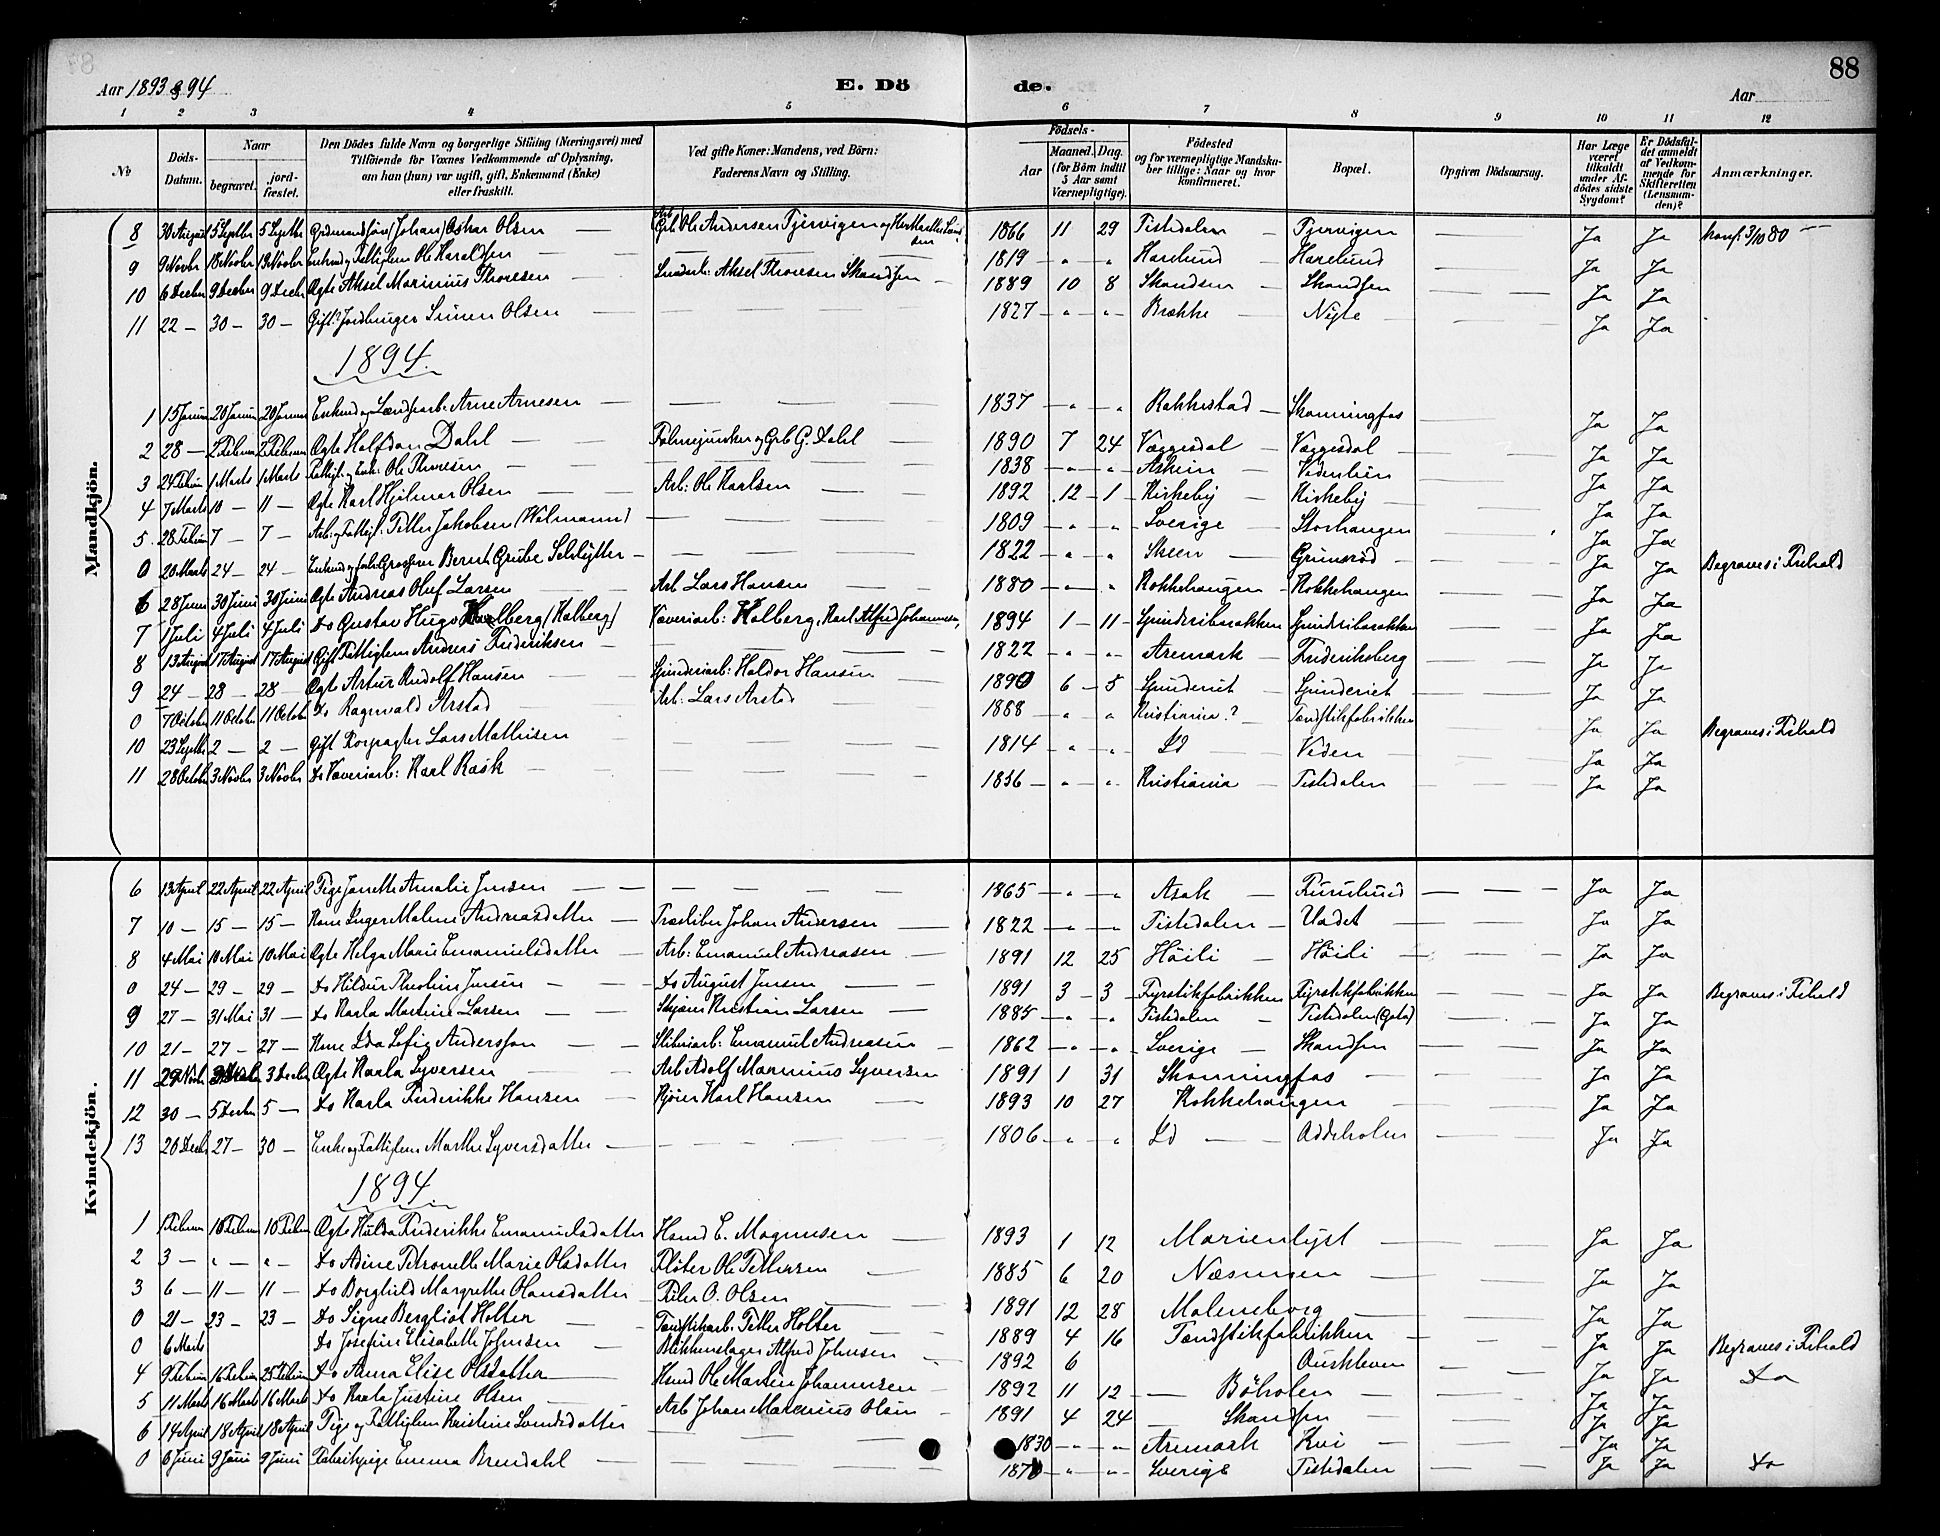 88
Aar 1893 & 94 E. Dö de. Aar
1 2 3 4 5 6 7 8 9 10 11 12
No Döds-Datum. Naar begravet. jordfæstet. Den Dödes fulde Navn og borgerlige Stilling (Næringsvei) med Tilföiende for Voxnes Vedkommende af Oplysning, om han (hun) var ugift, gift, Enkemand (Enke) eller fraskilt. Ved gifte Koner: Mandens, ved Börn: Faderens Navn og Stilling. Födsels- Aar Maaned. Dag. (for Börn indtil 5 Aar samt Værnepligtige). Födested og for værnepligtige Mandskaber tillige: Naar og hvor konfirmeret. Bopæl. Opgiven Dödsaarsag. Har Læge været tilkaldt under Afdödes sidste Sygdom? Er Dödsfaldet anmeldt af Vedkommende for Skifteretten (Lensmanden)? Anmærkninger.
Mandkjön.
8 30 August 5 Septbr 5 Septbr (Johan) Oskar Olsen — Ole Andersen Tjervigen og 1866 11 29 Tistedalen — Tjervigen Ja Ja Konf. 3/10 80
9 9 Novbr 13 Novbr 13 Novbr Enkmd og Fattiglem Ole Haraldsen — 1819 — " — " Harelund — Harelund Ja Ja
10 6 Decbr 9 Decbr 9 Decbr Ægte Aksel Marinius Thoresen — Aksel Thoresen Skandsen — 1889 10 8 Skandsen — Skandsen Ja Ja
11 22 — 30 — 30 — Gift Jordbruger Simen Olsen — 1827 — " — " Brække — Ja Ja
1894.
1 15 Januar 20 Januar 20 Januar Enkmd og Arne Arnesen — 1837 — " — " Rakkestad — Skonningfos Ja Ja
2 28 — 2 Februar 2 Februar Ægte Halfdan Dahl — G. Dahl — 1890 7 24 Væggesdal — Væggesdal Ja Ja
3 24 Februar 1 Marts 1 Marts Fattigl. og Enk: Ole Thoresen — 1838 — " — " Askim — Ja Ja
4 7 Marts 10 — 11 — Ægte Karl Hjalmar Olsen — Arb: Ole Karlsen — 1892 12 1 Kirkeby — Kirkeby Ja Ja
5 28 Februar 7 — 7 — Arb: og Fattigl: Petter Jakobsen (Wilmann) — 1809 — " — " Sverige — Storhaugen Ja Ja
0 20 Marts 24 — 24 — Enkmd og Bernt Grube — 1822 — " — " Skeen — Grimsrød Ja Ja Begraves i Frhald
6 28 Juni 30 Juni 30 Juni Ægte Andreas Oluf Larsen — Arb Lars Hansen — 1880 — " — " Kokkehaugen — Kokkehaugen Ja Ja
7 1 Juli 4 Juli 4 Juli do Gustav Hugo Kalberg (Halberg) Væveriarb: Halberg, Karl Alfred Johannesen, 1894 1 11 Spinderibarakken Spinderibarakken Ja Ja
8 13 August 17 August 17 August Gift Fattiglem Anders Frederiksen — 1822 — " — " Aremark — Frederiksberg Ja Ja
9 24 — 28 — 28 — Ægte Artur Rudolf Hansen — Spinderiarb: Haldor Hansen — 1890 6 5 Spinderiet — Spinderiet Ja Ja
0 7 October 11 October 11 October do Ragnvald Årstad — Arb: Lars Årstad 1888 — " " Kristiania? — Tændstikfabrikken Ja Ja Begraves i Frhald
10 23 Septbr 2 — 2 — Gift Lars Mathisen — 1814 — " " Id — Veden — Ja Ja
11 28 October 3 Novbr 3 Novbr do Væveriarb: Karl Rask — 1856 — " — " Kristiania — Tistedalen — Ja Ja
Kvindekjön.
6 13 April 22 April 22 April Pige Janette Amalie Jensen — 1865 — " — " Asak — Furulund — Ja Ja
7 10 — 15 — 15 — Kone Inger Malene Andreasdatter — Træsliber Johan Andersen — 1822 — " — " Tistedalen — Vadet — Ja Ja
8 4 Mai 10 Mai 10 Mai Ægte Helga Marie Emanuelsdatter Arb: Emanuel Andreasen — 1891 12 25 Höili — Höili — Ja Ja
0 24 — 29 — 29 — do Hildur Theoline Jensen — do August Jensen — 1891 3 3 Fyrstikfabrikken Fyrstikfabrikken Ja Ja Begraves i Frhald
9 27 — 31 Mai 31 — do Karla Martine Larsen — Kristian Larsen — 1885 — " — " Tistedalen — Tistedalen Ja Ja
10 21 — 27 — 27 — Kone Ida Sofie Andersson — Sliberiarb: Emanuel Andreasen — 1862 — " — " Sverige — Skandsen Ja Ja
11 29 Novbr 3 Decbr 3 Decbr Ægte Karla Syversen — Arb Adolf Marinius Syversen 1891 1 31 Skonningfos — Ja Ja
12 30 — 5 Decbr 5 — do Karla Frederikke Hansen — Kjører Karl Hansen — 1893 10 27 Kokkehaugen — Ja Ja
13 20 Decbr 27 — 30 — Enke og Fattiglem Marthe Syversdatter — 1806 — " " Id — Ja Ja
1894.
1 1 Februar 10 Februar 10 Februar Ægte Hulda Frederikke Emanuelsdatter Husmd E. Magnusen — 1893 1 12 Marienlyst — Ja Ja
2 3 — " — " — do Adine Petronelle Marie Olsdatter Fløter Ole Pettersen — 1885 6 20 Næsmosen — Ja Ja
3 6 — 11 — 11 — do Borghild Margrethe Hansdatter — O. Olsen — 1891 12 28 Maleneborg — Ja Ja
0 21 — 23 — 23 — do Signe Bergliot Holter — Tændstikarb. Petter Holter — 1889 4 16 Tændstikfabrikken — Ja Ja Begraves i Frhald
0 6 Marts do Josefine Elisabeth Johnsen — Blikkenslager Alfred Johnsen — 1892 6 — Ja Ja do
4 9 Februar 16 Februar 25 Februar do Anna Elise Olsdatter Husmd Ole Martin Johannesen — 1892 11 12 — Böholen — Ja Ja
5 11 Marts 16 Marts 16 Marts do Karla Justine Olsen — Arb Johan Marenius Olsen — 1891 4 24 — Skandsen — Ja Ja
6 14 April 18 April 18 April Pige og Fattiglem Kristine Svendsdatter — 1830 — " — " Aremark Kvi — Ja Ja
0 6 Juni 9 Juni 9 Juni Fabrikpige Emma Brendahl — — " — " — Sverige Tistedalen — Ja Ja do